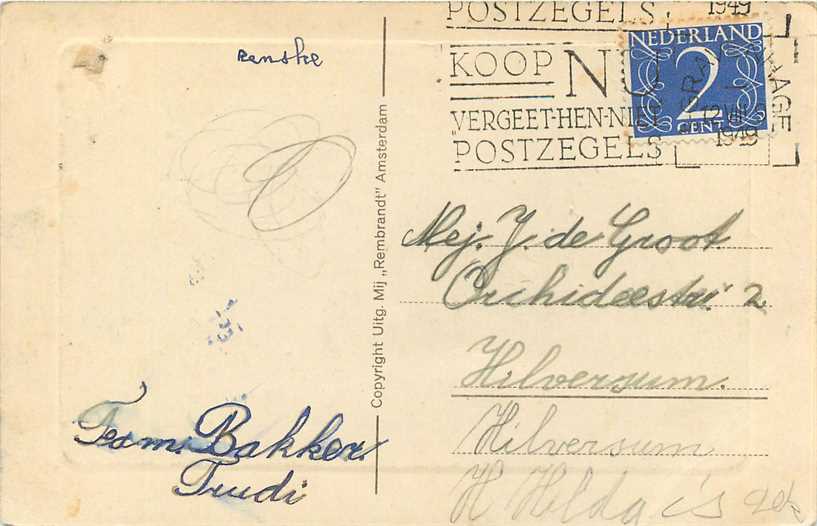 POSTZEGELS
1949
NEDERLAND
2
CENT
KOOP NU
VERGEET-HEN-NIET
POSTZEGELS
'S GRAVENHAGE
12 VIII
1949
Renske
Copyright Uitg. Mij „Rembrandt" Amsterdam
Mej. J. de Groot.
Orchideestr. 2
Hilversum.
Hilversum
H
is gek
Fam. Bakker.
Trudi